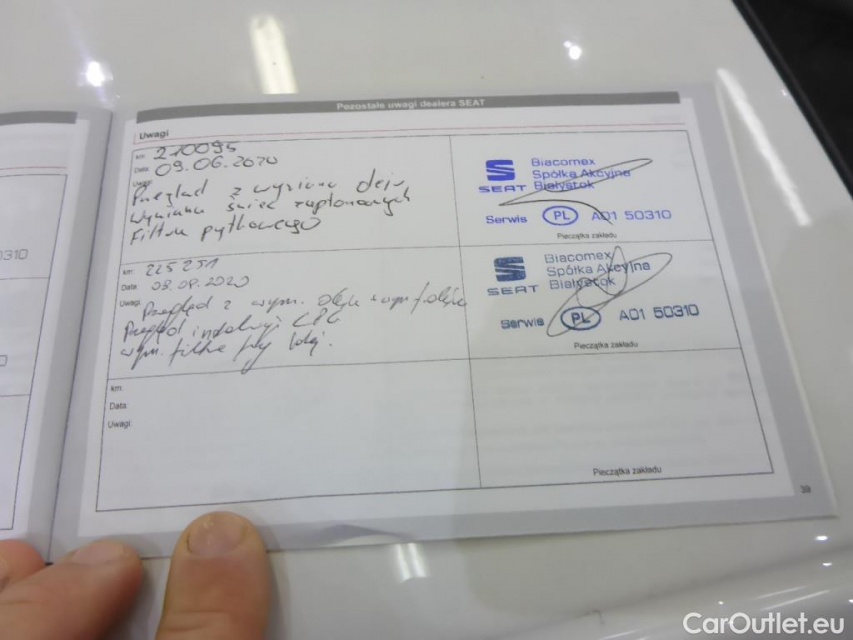 Pozostałe uwagi dealera SEAT
Uwagi
km: 210095
Data: 09.06.2020
Uwagi: Przegląd z wymianą oleju
wymiana świec zapłonowych
Filtra pyłkowego
SEAT
Biacomex
Spółka Akcyjna
Białystok
Serwis PL A01 50310
Pieczątka zakładu
km: 225251
Data: 08.09.2020
Uwagi: Przegląd z wym. oleju + wym
Przegląd instalacji
wym. filtra
SEAT
Biacomex
Spółka Akcyjna
Białystok
Serwis PL A01 50310
Pieczątka zakładu
km:
Data:
Uwagi:
Pieczątka zakładu
39
310
CarOutlet.eu